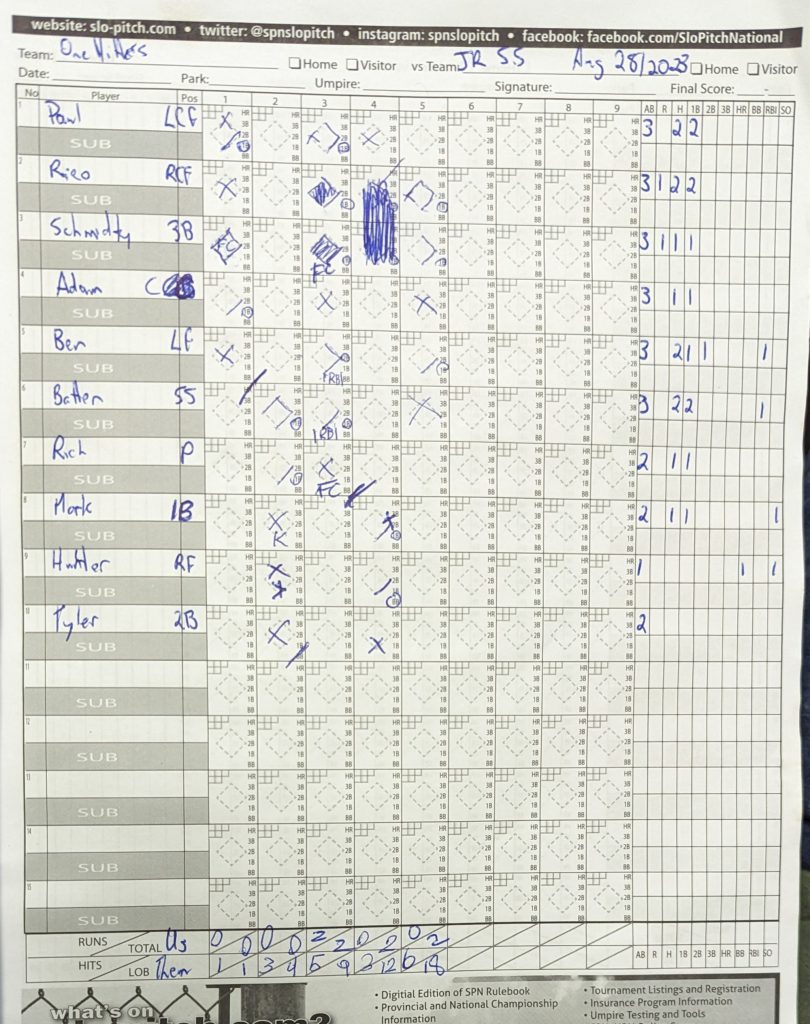 website: slo-pitch.com • twitter: @spnslopitch • instagram: spnslopitch • facebook: facebook.com/SloPitchNational
Team: One Hitters Home Visitor vs Team: JR 55 Aug 28/2023 Home Visitor
Date: Park: Umpire: Signature: Final Score: -
No Player Pos 1 2 3 4 5 6 7 8 9 AB R H 1B 2B 3B HR BB RBI SO
1 Paul LCF 3 2 2
SUB
2 Rico RCF 3 1 2 2
SUB
3 Schmidty 3B FC FC 3 1 1 1
SUB
4 Adam C 3 1 1
SUB
5 Ben LF 1RBI 3 2 1 1 1
SUB
6 Batten SS 1RBI 3 2 2 1
SUB
7 Rich P FC 2 1 1
SUB
8 Mark 1B K 2 1 1 1
SUB
9 RF 1 1 1
SUB
10 Tyler 2B 2
SUB
11
SUB
12
SUB
13
SUB
14
SUB
15
SUB
RUNS TOTAL Us 0 0 0 0 2 2 0 2 0 2 AB R H 1B 2B 3B HR BB RBI SO
HITS LOB Them 1 1 3 4 5 9 3 12 6 18
what's on
• Digitial Edition of SPN Rulebook
• Provincial and National Championship
Information
• Tournament Listings and Registration
• Insurance Program Information
• Umpire Testing and Tools